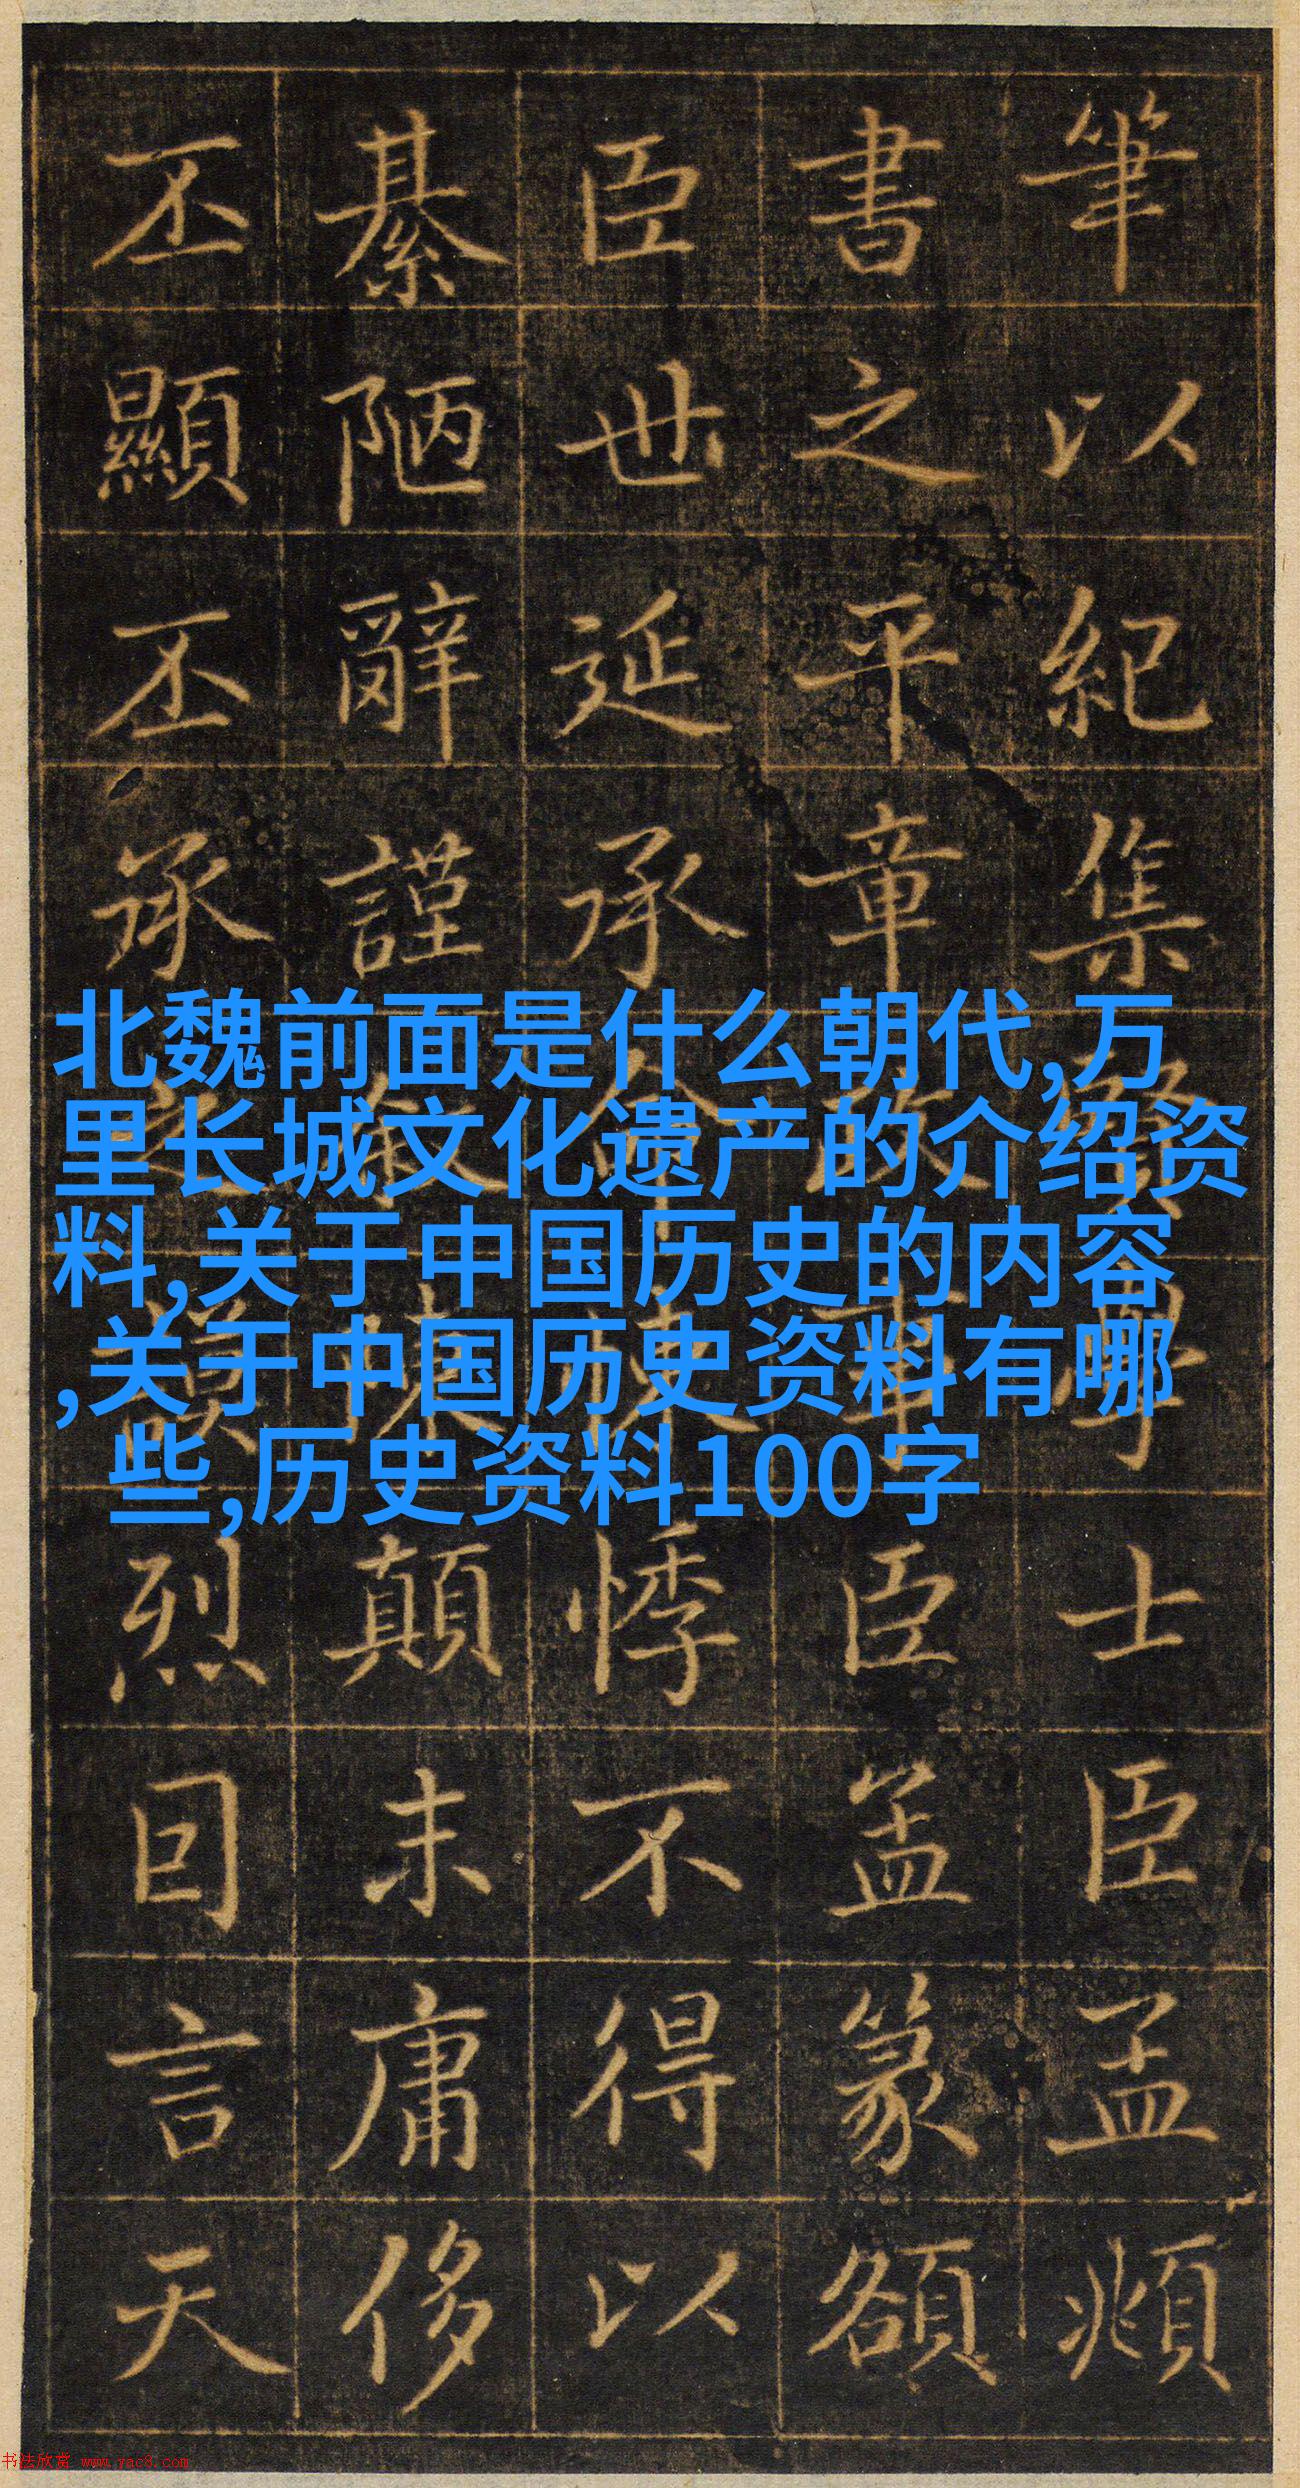 筆以紀集賢學士臣孟頫
書之平章政事臣篆額
臣世延承命悚悸不得以
綦陋辭謹陳顛末庸侈
丕顯丕承之謨烈囙言天
北魏前面是什么朝代,万
里长城文化遗产的介绍资
料,关于中国历史的内容
,关于中国历史资料有哪
些,历史资料100字
书法欣赏 www.yac8.com